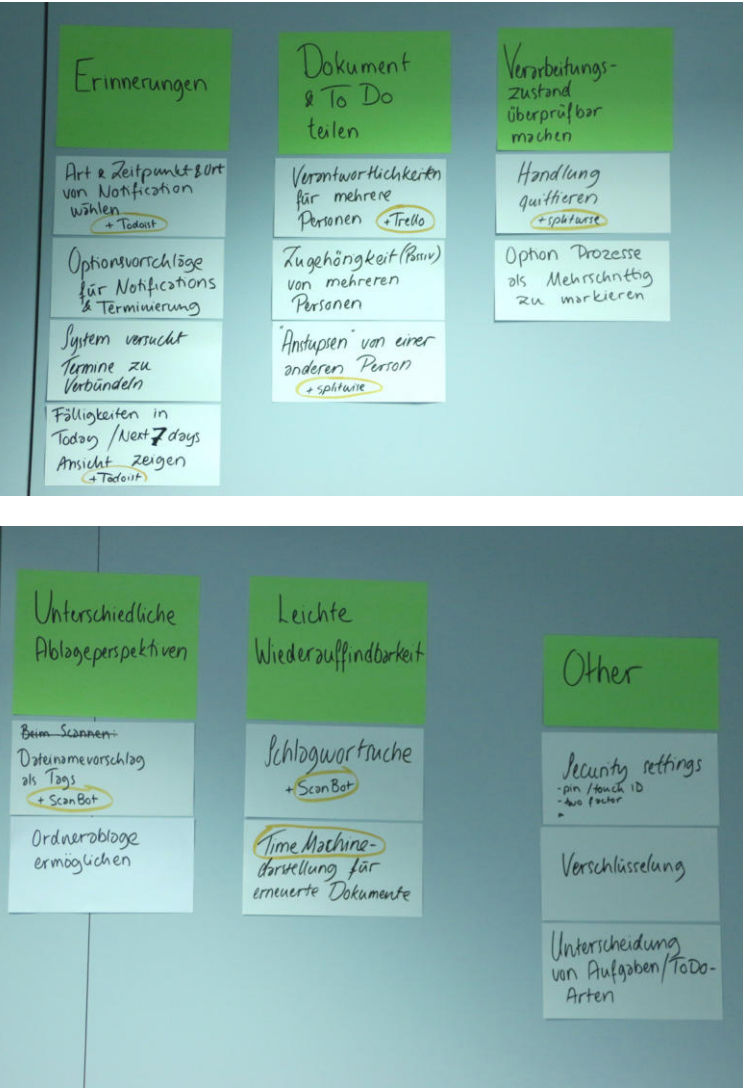 Erinnerungen
Art & Zeitpunkt & Ort
von Notification
wählen
+ Todoist
Optionsvorschläge
für Notifications
& Terminierung
System versucht
Termine zu
Verbündeln
Fälligkeiten in
Today / Next 7 days
Ansicht zeigen
+ Todoist
Dokument
& To Do
teilen
Verantwortlichkeiten
für mehrere
Personen + Trello
Zugehöngkeit (Passiv)
von mehreren
Personen
"Anstupsen" von einer
anderen Person
+ splitwise
Verarbeitungs-
zustand
überprüfbar
machen
Handlung
quittieren
+ splitwise
Option Prozesse
als Mehrschrittig
zu markieren
Unterschiedliche
Ablageperspektiven
Beim Scannen:
Dateinamevorschlag
als Tags
+ ScanBot
Ordnerablage
ermöglichen
Leichte
Wiederauffindbarkeit
Schlagwortsuche
+ ScanBot
Time Machine-
darstellung für
erneuerte Dokumente
Other
Security settings
- pin / touch ID
- two factor
-
Verschlüsselung
Unterscheidung
von Aufgaben/ToDo-
Arten